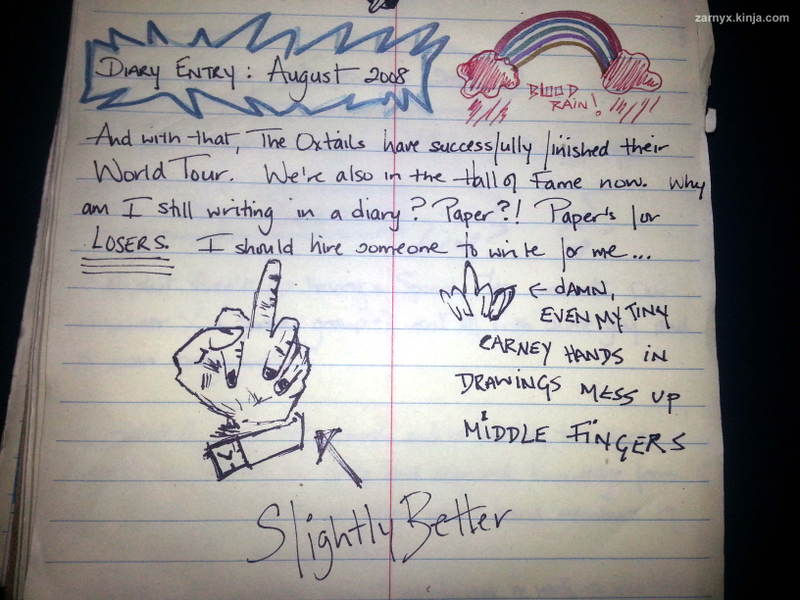 zarnyx.kinja.com
DIARY ENTRY: AUGUST 2008
BLOOD
RAIN!
And with that, The Oxtails have successfully finished their
World Tour. We're also in the Hall of Fame now. Why
am I still writing in a diary? Paper?! Paper's for
LOSERS. I should hire someone to write for me...
← DAMN,
EVEN MY TINY
CARNEY HANDS IN
DRAWINGS MESS UP
MIDDLE FINGERS
Slightly Better